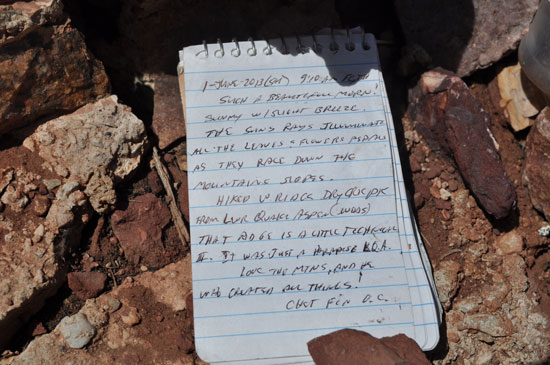 1-JUNE-2013(SAT) 9:40 AM
SUCH A BEAUTIFUL MORN!
SUNNY W/SLIGHT BREEZE.
THE SUNS RAYS ILLUMINATE
ALL THE LEAVES & FLOWERS
AS THEY RACE DOWN THE
MOUNTAINS SLOPES.
HIKED RIDGE DRY
FROM LWR QUAKE ASPEN (WDS)
THAT RIDGE IS A LITTLE TECHNICAL
IT WAS JUST A
LOVE THE MTNS, AND HE
WHO CREATED ALL THINGS!
CHET FIN D.C.